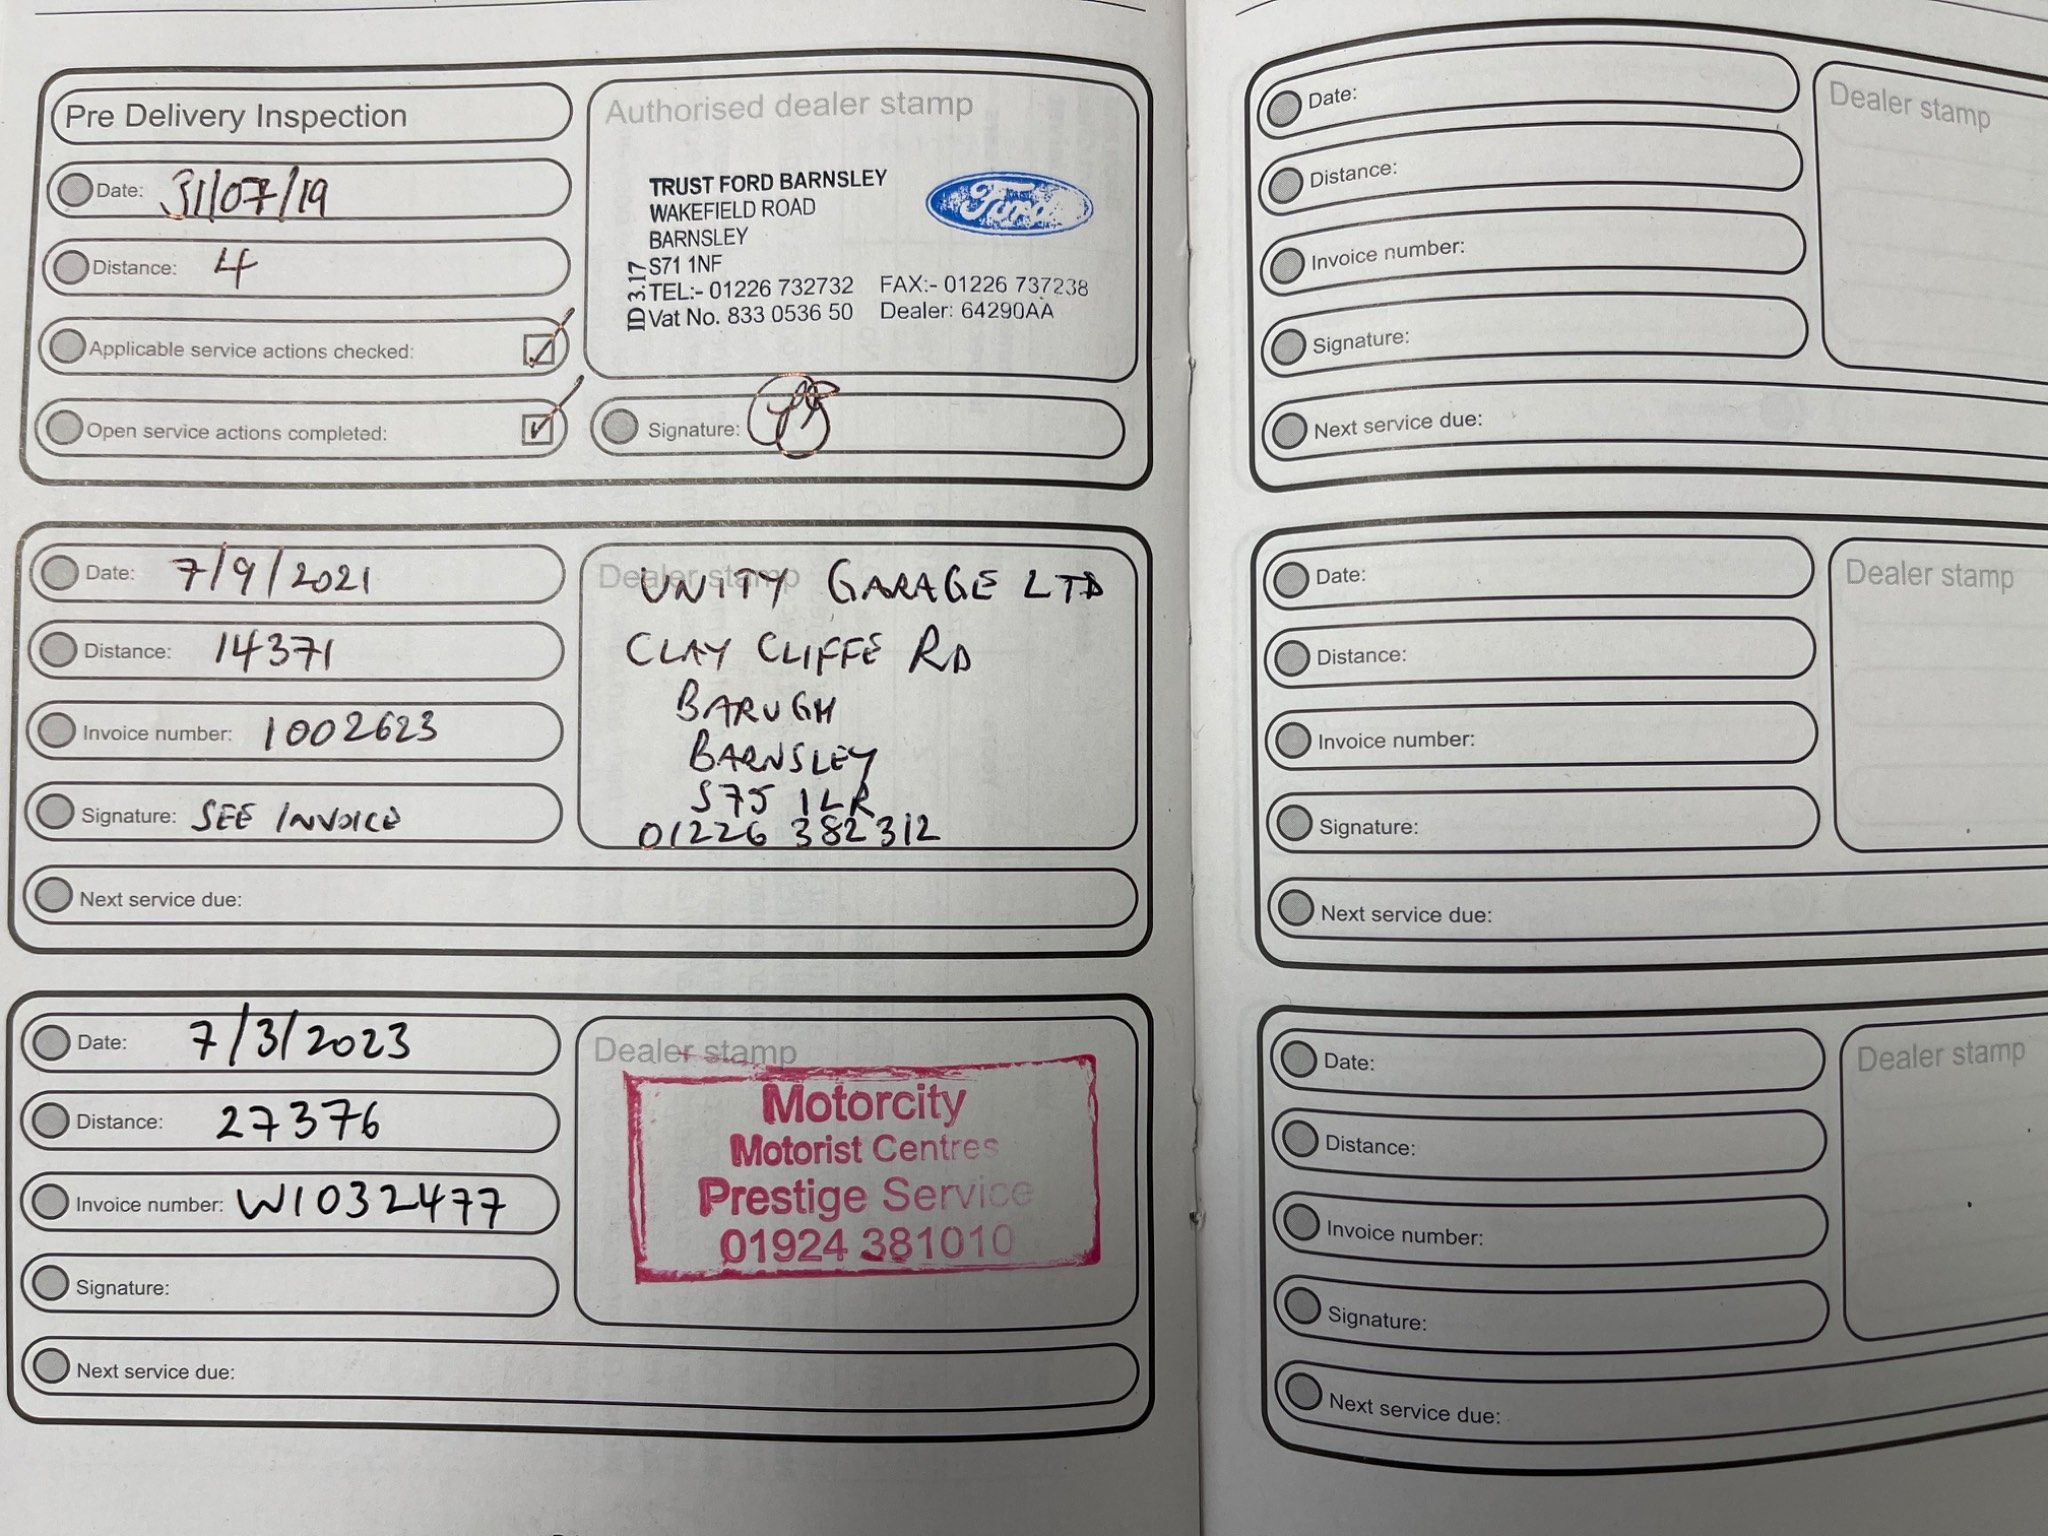 Pre Delivery Inspection
Date: 31/07/19
Distance: 4
Applicable service actions checked:
Open service actions completed:
Authorised dealer stamp
TRUST FORD BARNSLEY
WAKEFIELD ROAD
BARNSLEY
S71 1NF
TEL:- 01226 732732 FAX:- 01226 737238
Vat No. 833 0536 50 Dealer: 64290AA
ID 3.17
Ford
Signature:
Date: 7/9/2021
Distance: 14371
Invoice number: 1002623
Signature: SEE INVOICE
Next service due:
Dealer stamp
UNITY GARAGE LTD
CLAY CLIFFE RD
BARUGH
BARNSLEY
S75 1LR
01226 382312
Date: 7/3/2023
Distance: 27376
Invoice number: W1032477
Signature:
Next service due:
Dealer stamp
Motorcity
Motorist Centres
Prestige Service
01924 381010
Date:
Distance:
Invoice number:
Signature:
Next service due:
Dealer stamp
Date:
Distance:
Invoice number:
Signature:
Next service due:
Dealer stamp
Date:
Distance:
Invoice number:
Signature:
Next service due:
Dealer stamp